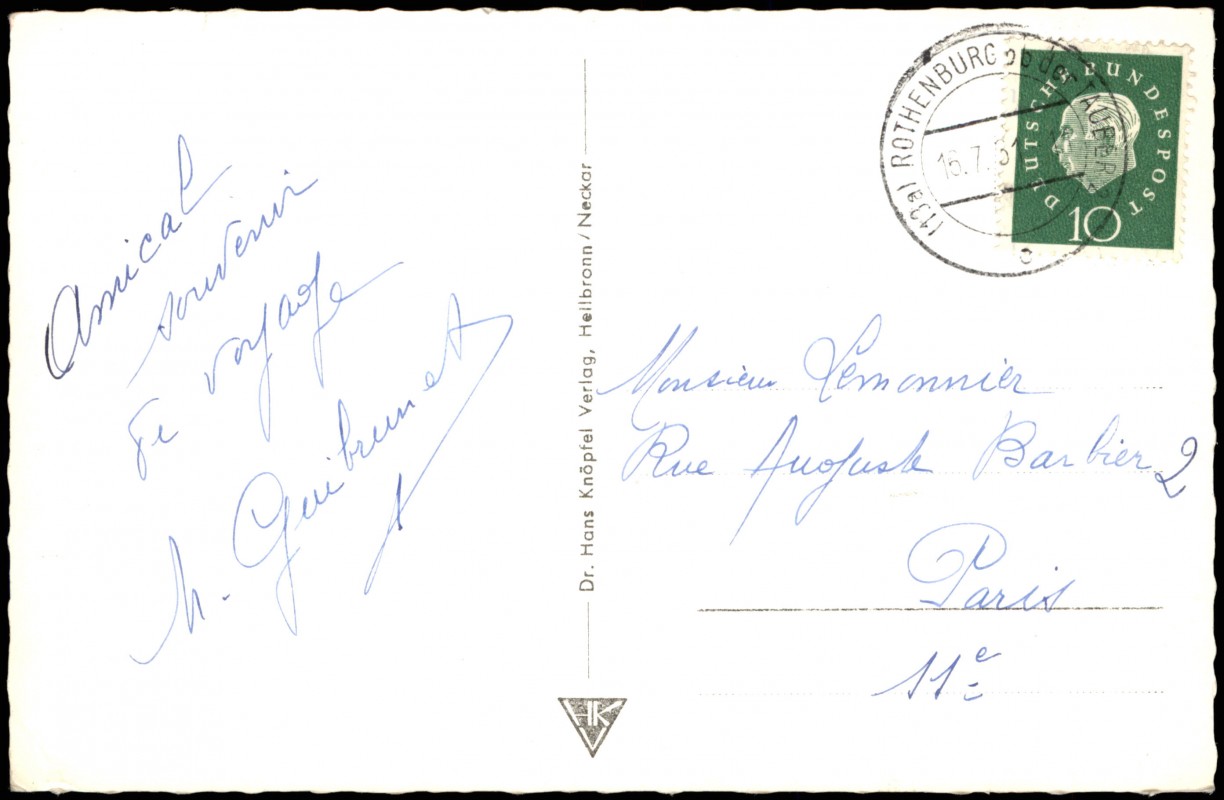 Amical
souvenir
de voyage
M. Guibrunet
Dr. Hans Knöpfel Verlag, Heilbronn / Neckar
HKV
(13a) ROTHENBURG ob der TAUBER
16.7.61
DEUTSCHE BUNDESPOST
10
Monsieur Lemonnier
Rue Auguste Barbier 2
Paris
11e